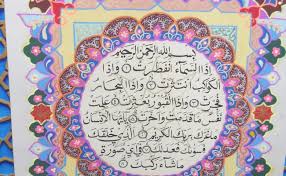 بِسْمِ اللهِ الرَّحْمٰنِ الرَّحِيْمِ
اِذَا السَّمَآءُ انْفَطَرَتْ ○ وَاِذَا
الْكَوَاكِبُ انْتَثَرَتْ ○ وَاِذَا الْبِحَارُ
فُجِّرَتْ ○ وَاِذَا الْقُبُوْرُ بُعْثِرَتْ ○ عَلِمَتْ
نَفْسٌ مَّا قَدَّمَتْ وَاَخَّرَتْ ○ يٰٓاَيُّهَا الْاِنْسَانُ
مَا غَرَّكَ بِرَبِّكَ الْكَرِيْمِ ○ الَّذِيْ خَلَقَكَ
فَسَوّٰىكَ فَعَدَلَكَ ○ فِيْٓ اَيِّ صُوْرَةٍ
مَّا شَآءَ رَكَّبَكَ ○